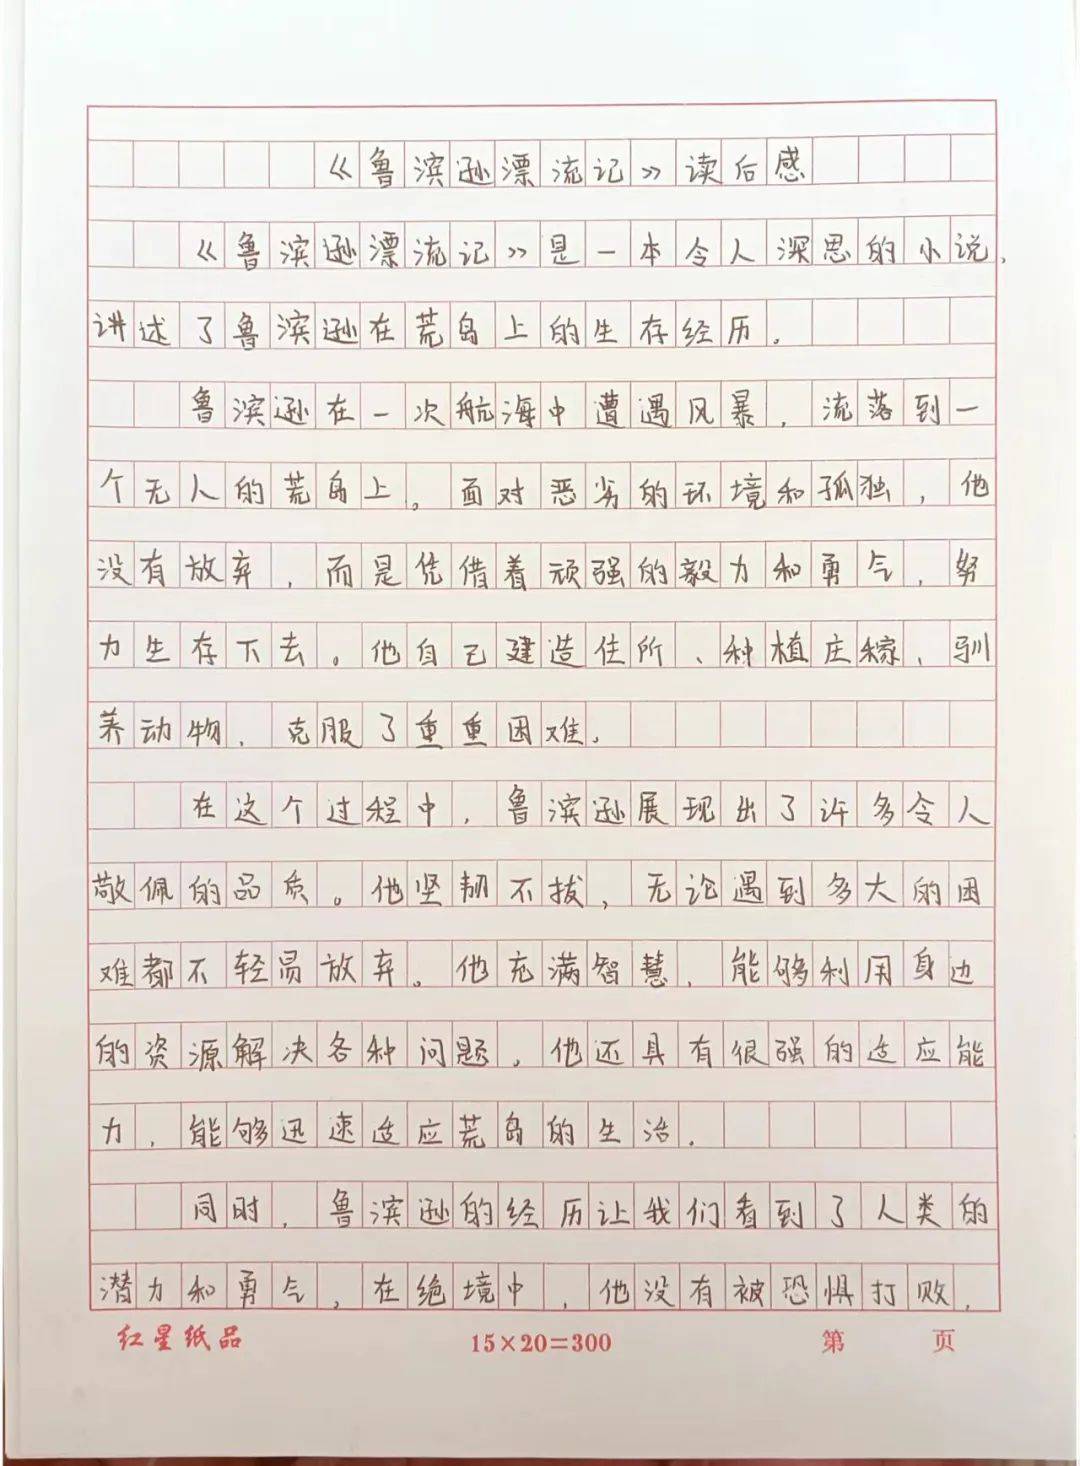 《鲁滨逊漂流记》读后感
《鲁滨逊漂流记》是一本令人深思的小说，
讲述了鲁滨逊在荒岛上的生存经历。
鲁滨逊在一次航海中遭遇风暴，流落到一
个无人的荒岛上。面对恶劣的环境和孤独，他
没有放弃，而是凭借着顽强的毅力和勇气，努
力生存下去。他自己建造住所、种植庄稼、驯
养动物，克服了重重困难。
在这个过程中，鲁滨逊展现出了许多令人
敬佩的品质。他坚韧不拔，无论遇到多大的困
难都不轻易放弃。他充满智慧，能够利用身边
的资源解决各种问题，他还具有很强的适应能
力，能够迅速适应荒岛的生活。
同时，鲁滨逊的经历让我们看到了人类的
潜力和勇气，在绝境中，他没有被恐惧打败，
红星纸品 15×20=300 第 页